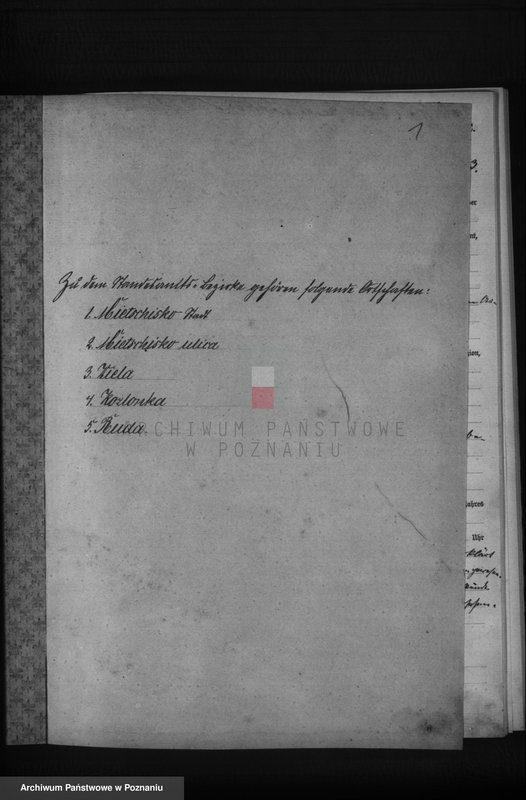 1
Zu dem Standesamts-Bezirke gehören folgende Ortschaften:
1. Mietschisko Stadt
2. Mietschisko ulica
3. Ziela
4. Kozlonka
5. Ruda.
ARCHIWUM PAŃSTWOWE
W POZNANIU
3.
ahres
Uhr
Archiwum Państwowe w Poznaniu